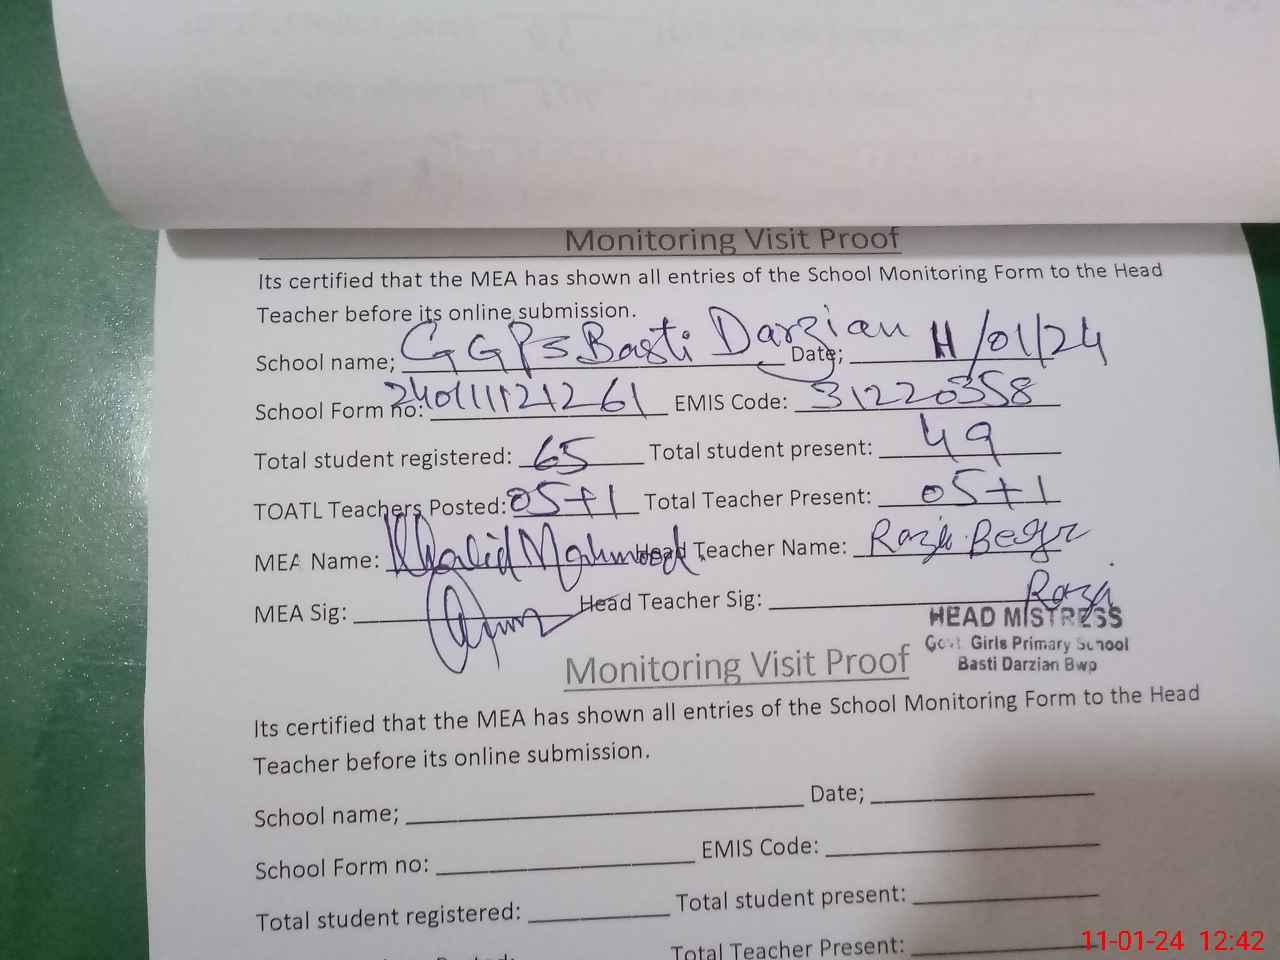 Monitoring Visit Proof
Its certified that the MEA has shown all entries of the School Monitoring Form to the Head
Teacher before its online submission.
School name; GGPS Basti Darzian Date; 11/01/24
School Form no: 240111121261 EMIS Code: 31220358
Total student registered: 65 Total student present: 49
TOATL Teachers Posted: 05+1 Total Teacher Present: 05+1
MEA Name: Khalid Mahmood Head Teacher Name:
MEA Sig: Head Teacher Sig: Razi
HEAD MISTRESS
Govt Girls Primary School
Basti Darzian Bwp
Monitoring Visit Proof
Its certified that the MEA has shown all entries of the School Monitoring Form to the Head
Teacher before its online submission.
School name; Date;
School Form no: EMIS Code:
Total student registered: Total student present:
Total Teacher Present:
11-01-24 12:42